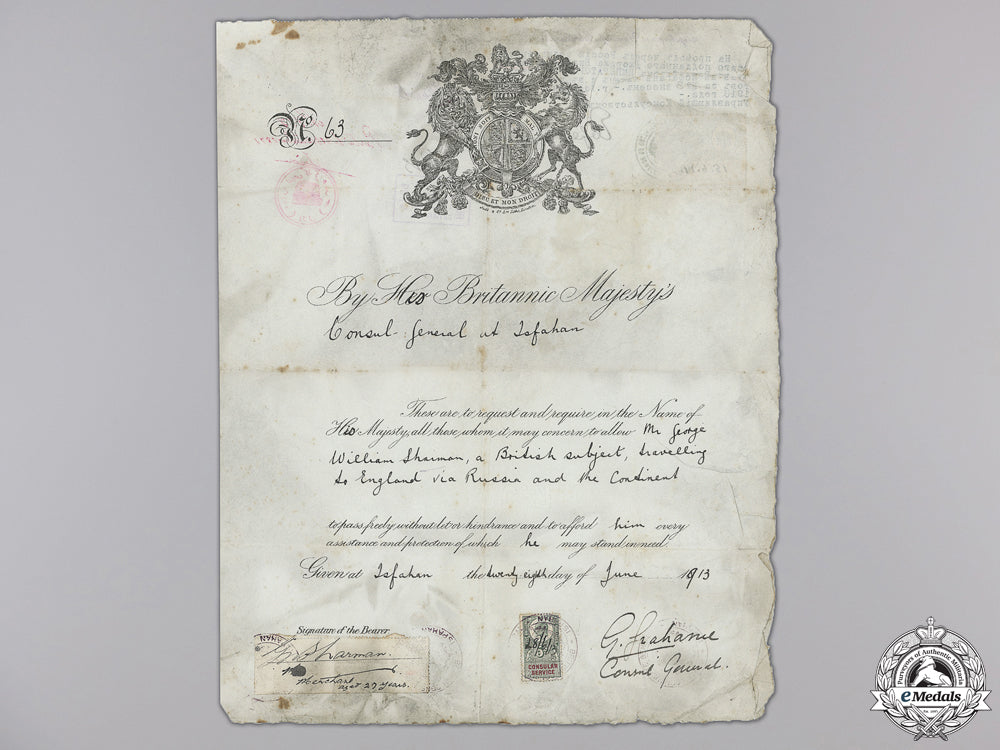 No. 63
DIEU ET MON DROIT
By His Britannic Majesty's
Consul-General at Isfahan
These are to request and require in the Name of
His Majesty, all those whom it may concern to allow Mr George
William Sharman, a British subject, travelling
to England via Russia and the Continent
to pass freely without let or hindrance and to afford him every
assistance and protection of which he may stand in need.
Given at Isfahan the twenty eighth day of June 1913
Signature of the Bearer.
G W Sharman.
Merchant
aged 27 years.
28/6/13
CONSULAR
SERVICE
G. Grahame
Consul General.
Purveyors of Authentic Militaria
eMedals